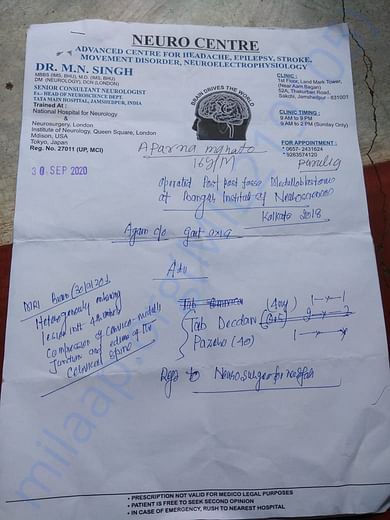 NEURO CENTRE
ADVANCED CENTRE FOR HEADACHE, EPILEPSY, STROKE,
MOVEMENT DISORDER, NEUROELECTROPHYSIOLOGY
DR. M.N. SINGH
MBBS (IMS, BHU), M.D. (IMS, BHU)
DM (NEUROLOGY), DCN (LONDON)
SENIOR CONSULTANT NEUROLOGIST
Ex.- HEAD OF NEUROSCIENCE DEPT.
TATA MAIN HOSPITAL, JAMSHEDPUR, INDIA
Trained At :
National Hospital for Neurology
&
Neurosurgery, London
Institute of Neurology, Queen Square, London
Mdison, USA
Tokyo, Japan
Reg. No. 27011 (UP, MCI)
BRAIN DRIVES THE WORLD
CLINIC :
1st Floor, Land Mark Tower,
(Near Aam Bagan)
52A, Thakurbari Road,
Sakchi, Jamshedpur - 831001
CLINIC TIMING :
9 AM to 9 PM
9 AM to 2 PM (Sunday Only)
FOR APPOINTMENT :
0657- 2431624
9263574120
30 SEP 2020
Aparna mahato
16y/M
operated Post fossa Medulloblastoma
at Bangur Institute of Neurosciences
Kolkata 2018
Again c/o
Adv
MRI Brain
Heterogeneously enhancing
lesion with
Compression of Cervico-medullary
Junction and edema of the
Cervical Spine
Tab
Tab Decdan
(40)
Refd to Neurosurgeon for
• PRESCRIPTION NOT VALID FOR MEDICO LEGAL PURPOSES
• PATIENT IS FREE TO SEEK SECOND OPINION
• IN CASE OF EMERGENCY, RUSH TO NEAREST HOSPITAL